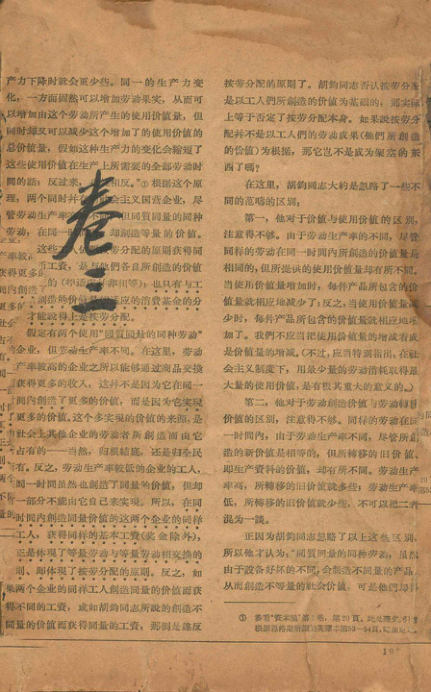 产力下降时就会更少些。同一的生产力变
化，一方面固然可以增加劳动果实，从而可
以增加由这个劳动所产生的使用价值量，但
同时却又可以减少这个增加了的使用价值的
总价值量，假如这种生产力的变化会缩短了
这些使用价值在生产上所需要的全部劳动时
间的话；反过来，相反。”①根据这个原
理，两个同时并会主义国营企业，尽
管劳动生产率但同质同量的同种
劳动，在同一时却创造等量的价值。
这些分配的原则获得同
工资，是们各自所创造的价值
的也只有与工
创造的价值的消费基金的分
才能说得上是按劳分配。
假定有两个使用“同质同量的同种劳动”
企业，但劳动生产率不同。在这里，劳动
产率较高的企业之所以能够通过商品交换
获得更多的收入，这并不是因为它在同一
间内创造了更多的价值，而是因为它实现
更多的价值。这个多实现的价值的来源，是
社会上其他企业的劳动者所创造而由它
占有的——当然，归根结底，还是归全民
有。反之，劳动生产率较低的企业的工人，
同一时间虽然也创造了同量的价值，但却
一部分不能由它自己来实现。所以，在同
时间内创造同量价值的这两个企业的同样
工人，获得同样的基本工资（奖金除外），
正是体现了等量劳动与等量劳动相交换的
则，即体现了按劳分配的原则。反之，如
果两个企业的同样工人创造同量的价值而获
得不同的工资，或如胡钧同志所说的创造不
同量的价值而获得同量的工资，那倒是违反
卷三
按劳分配的原则了。胡钧同志否认按劳分配
是以工人们所创造的价值为基础的，那实际
上等于否定了按劳分配本身。如果说按劳分
配并不是以工人们的劳动成果（他们所创造
的价值）为根据，那它岂不是成为架空的东
西了吗？
在这里，胡钧同志大约是忽略了一些不
同的范畴的区别。
第一，他对于价值与使用价值的区别，
注意得不够。由于劳动生产率的不同，尽管
同样的劳动在同一时间内所创造的价值量是
相同的，但所提供的使用价值量却有所不同。
当使用价值量增加时，每件产品所包含的价
值量就相应地减少了；反之，当使用价值量减
少时，每件产品所包含的价值量就相应地增
加了。我们不应当把使用价值量的增减看成
是价值量的增减。（不过，应当特别指出，在社
会主义制度下，用最少量的劳动消耗取得最
大量的使用价值，是有极其重大的意义的。）
第二，他对于劳动创造价值与劳动转移
价值的区别，注意得不够。同样的劳动在同
一时间内，由于劳动生产率不同，尽管所创
造的新价值是相等的，但所转移的旧价值，
即生产资料的价值，却有所不同。劳动生产
率高，所转移的旧价值就多些，劳动生产率
低，所转移的旧价值就少些，不可以把二者
混为一谈。
正因为胡钧同志忽略了以上这些区别，
所以他才认为，“同质同量的同种劳动，虽然
由于设备好坏的不同，会创造不同量的产品，
从而创造不等量的社会价值，可是他们却
① 参看“资本论”第1卷，第20页。